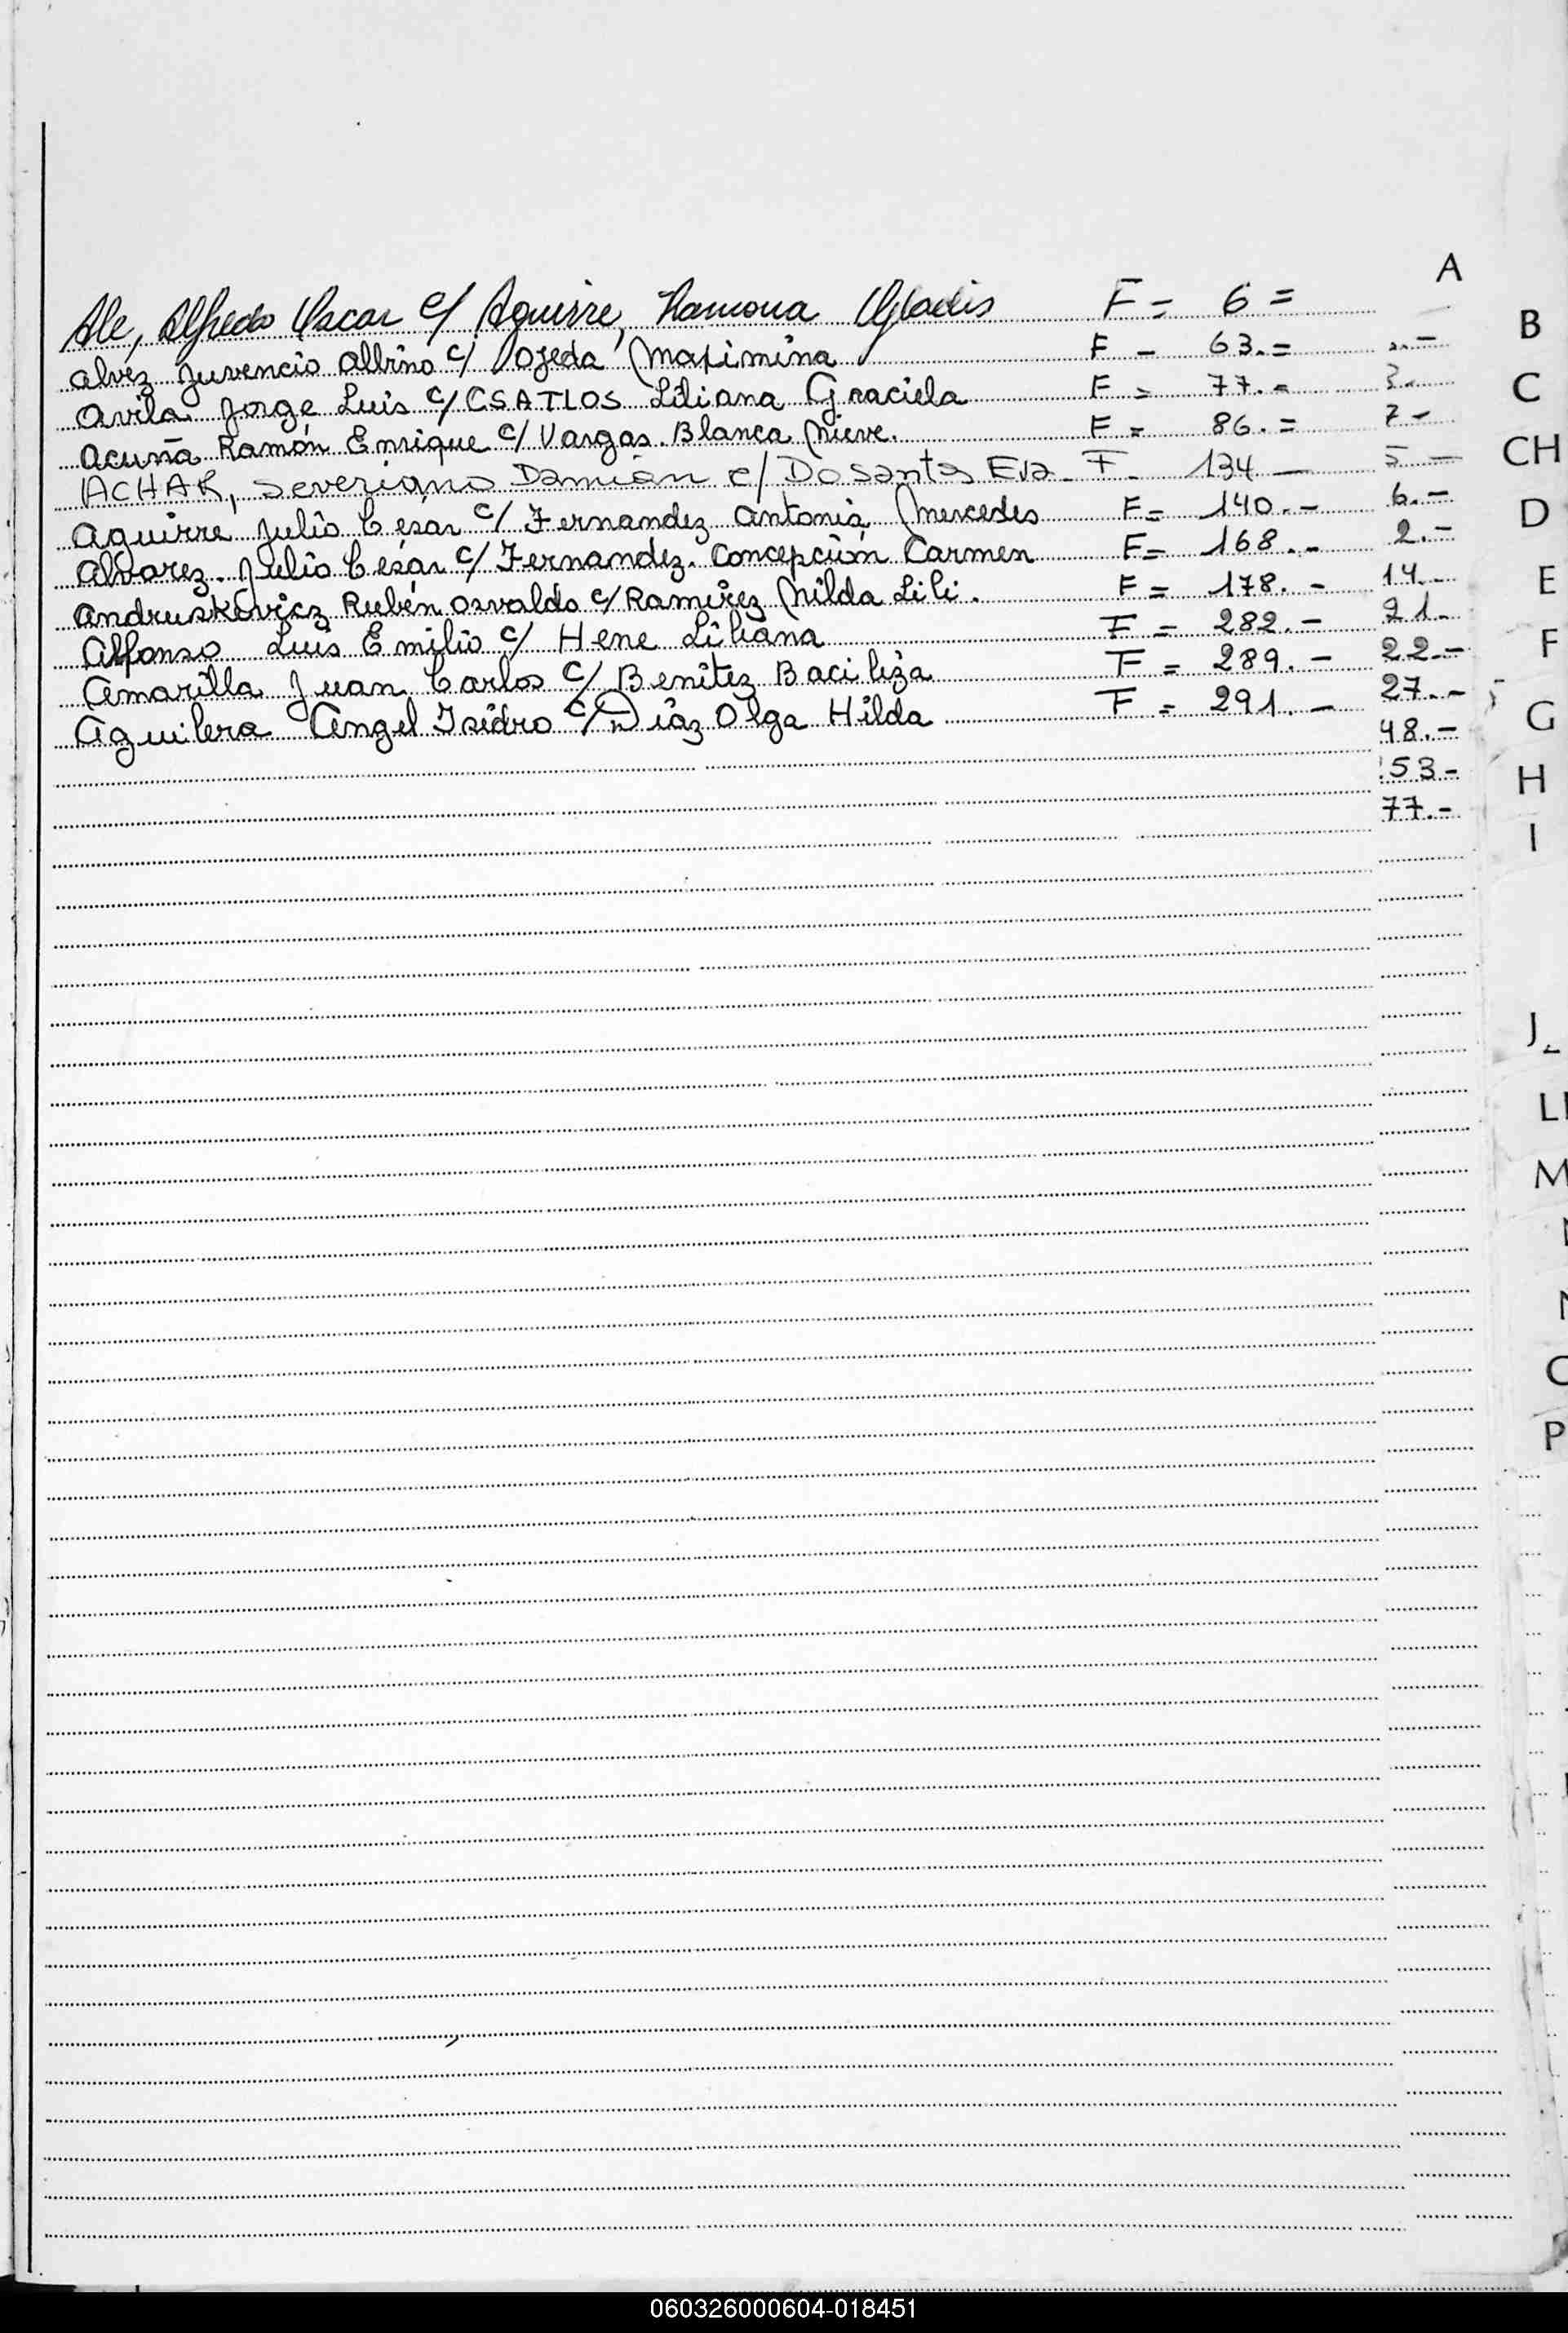 A
Ale, Alfredo Oscar c/ Aguirre, Ramona Gladis F = 6 =
Alvez Juvencio Albino c/ Ojeda Maximina F - 63.=
Avila Jorge Luis c/ CSATLOS Liliana Graciela F = 77.=
Acuña Ramón Enrique c/ Vargas Blanca Nieve. F = 86.= 7-
ACHAR, Severiano Damián c/ Do Santos Eva - F - 134 — 5 —
Aguirre Julio César c/ Fernandez Antonia Mercedes F= 140.- 6.-
Alvarez Julio César c/ Fernandez Concepción Carmen F= 168.- 2.-
Andruskevicz Rubén Osvaldo c/ Ramirez Nilda Lili. F = 178.- 14.-
Alfonso Luis Emilio c/ Hene Liliana F = 282.- 21.-
Amarilla Juan Carlos c/ Benitez Baciliza F = 289.- 22.-
Aguilera Angel Isidro c/ Diaz Olga Hilda F = 291.- 27.-
48.-
53-
77.-
B
C
CH
D
E
F
G
H
I
J
M
P
060326000604-018451